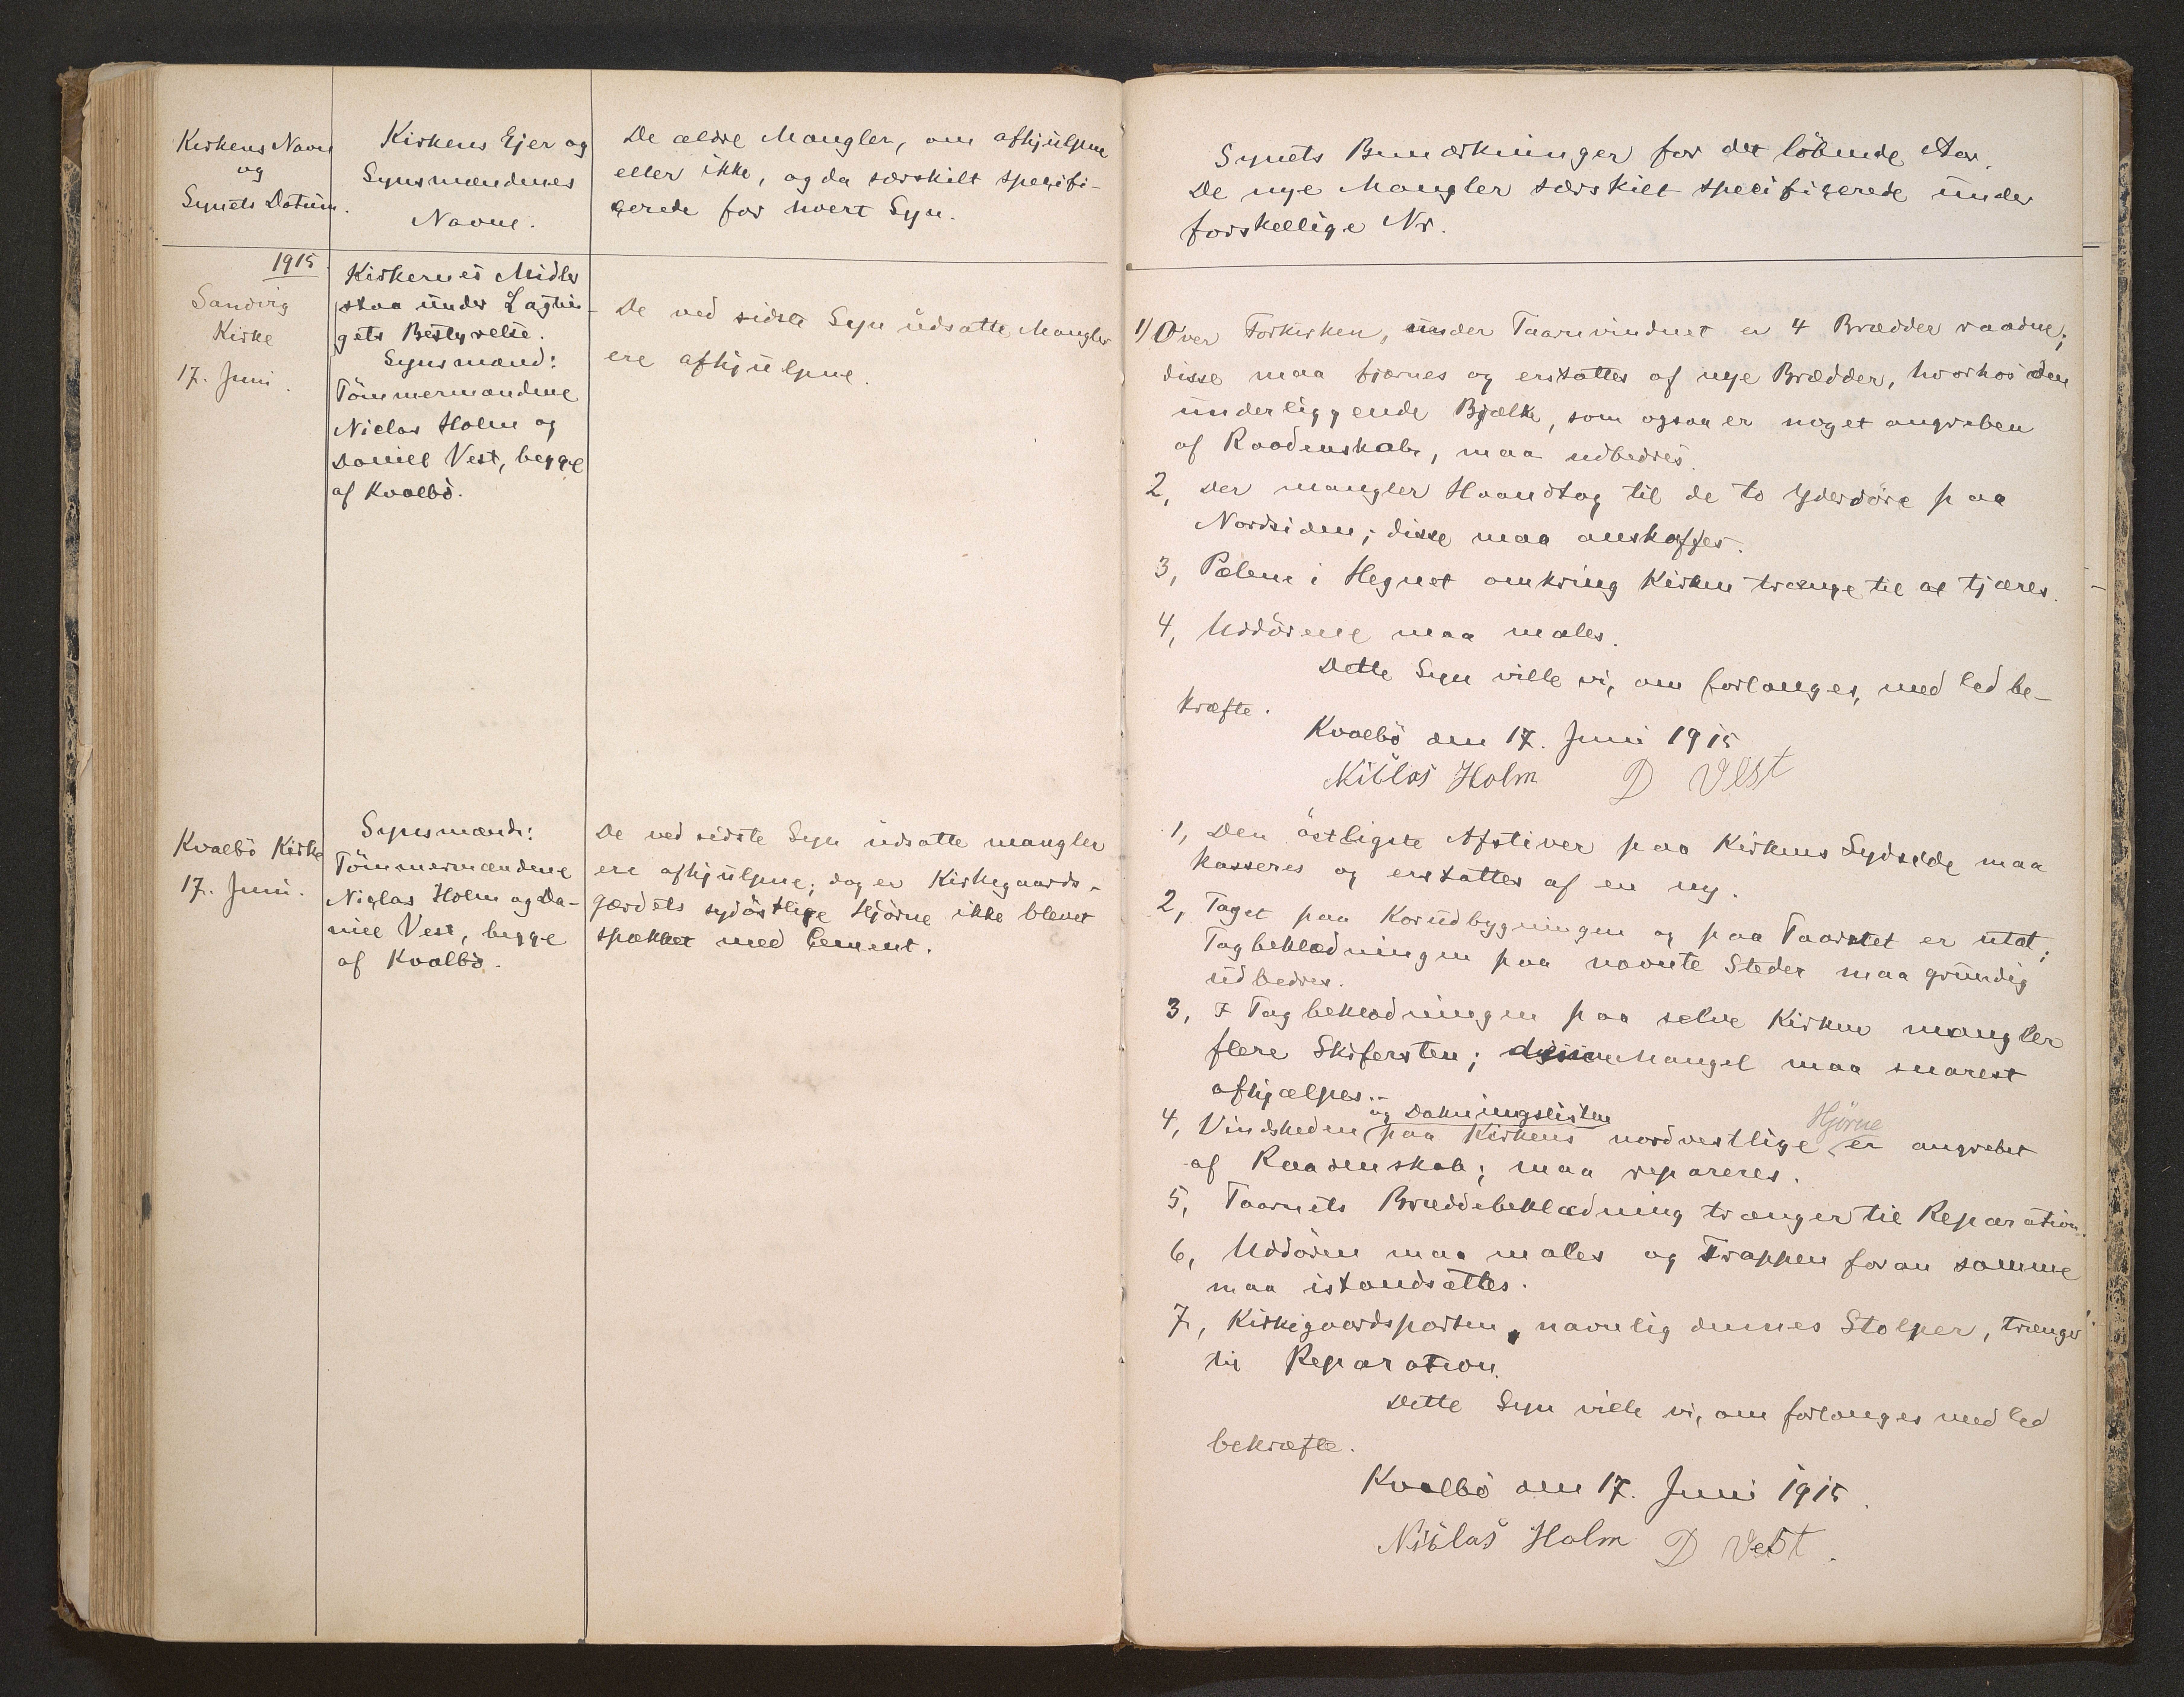 Kirkens Navn
og
Synets Datum.
Kirkens Ejer og
Synsmændenes
Navne.
De ældre Mangler, om afhjulpne
eller ikke, og da særskilt specifi-
cerede for hvert Syn.
1915
Sandvig
Kirke
17. Juni.
Kirkernes Midler
staa under Lagtin-
gets Bestyrelse.
Synsmænd:
Tömmermændene
Niclas Holm og
Daniel Vest, begge
af Kvalbö.
De ved sidste Syn udsatte Mangler
ere afhjulpne.
Kvalbö Kirke
17. Juni.
Synsmænd:
Tömmermændene
Niclas Holm og Da-
niel Vest, begge
af Kvalbö.
De ved sidste Syn udsatte mangler
ere afhjulpne; dog er Kirkegaards-
gærdets sydöstlige Hjörne ikke blevet
spækket med Cement.
Synets Bemærkninger for det löbende Aar.
De nye Mangler særskilt specificerede under
forskellige Nr.
1) Over Forkirken, under Taarnvinduet er 4 Brædder raadne;
disse maa fjærnes og erstattes af nye Brædder, hvorhos den
underliggende Bjælke, som ogsaa er noget angreben
af Raadenskab, maa udbedres.
2, Der mangler Haandtag til de to Yderdöre paa
Nordsiden; disse maa anskaffes.
3, Pælene i Hegnet omkring Kirken trænge til at tjæres.
4, Uddörene maa males.
Dette Syn ville vi, om forlanges, med Ed be-
kræfte.
Kvalbö den 17. Juni 1915
Niclas Holm D Vest
1, Den östligste Afstiver paa Kirkens Sydside maa
kasseres og erstattes af en ny.
2, Taget paa Korudbygningen og paa Taarnet er utæt;
Tagbeklædningen paa nævnte Steder maa grundig
udbedres.
3, I Tagbeklædningen paa selve Kirken mangler
flere Skifersten; denne Mangel maa snarest
afhjælpes.
og Dækningslisten
Hjörne
4, Vindskeden paa Kirkens nordvestlige er angrebet
af Raadenskab; maa repareres.
5, Taarnets Bræddebeklædning trænger til Reparation.
6, Uddören maa males og Trappen foran samme
maa istandsættes.
7, Kirkegaardsporten, navnlig dennes Stolper, trænger
til Reparation.
Dette Syn ville vi, om forlanges med Ed
bekræfte.
Kvalbö den 17. Juni 1915.
Niclas Holm D Vest.